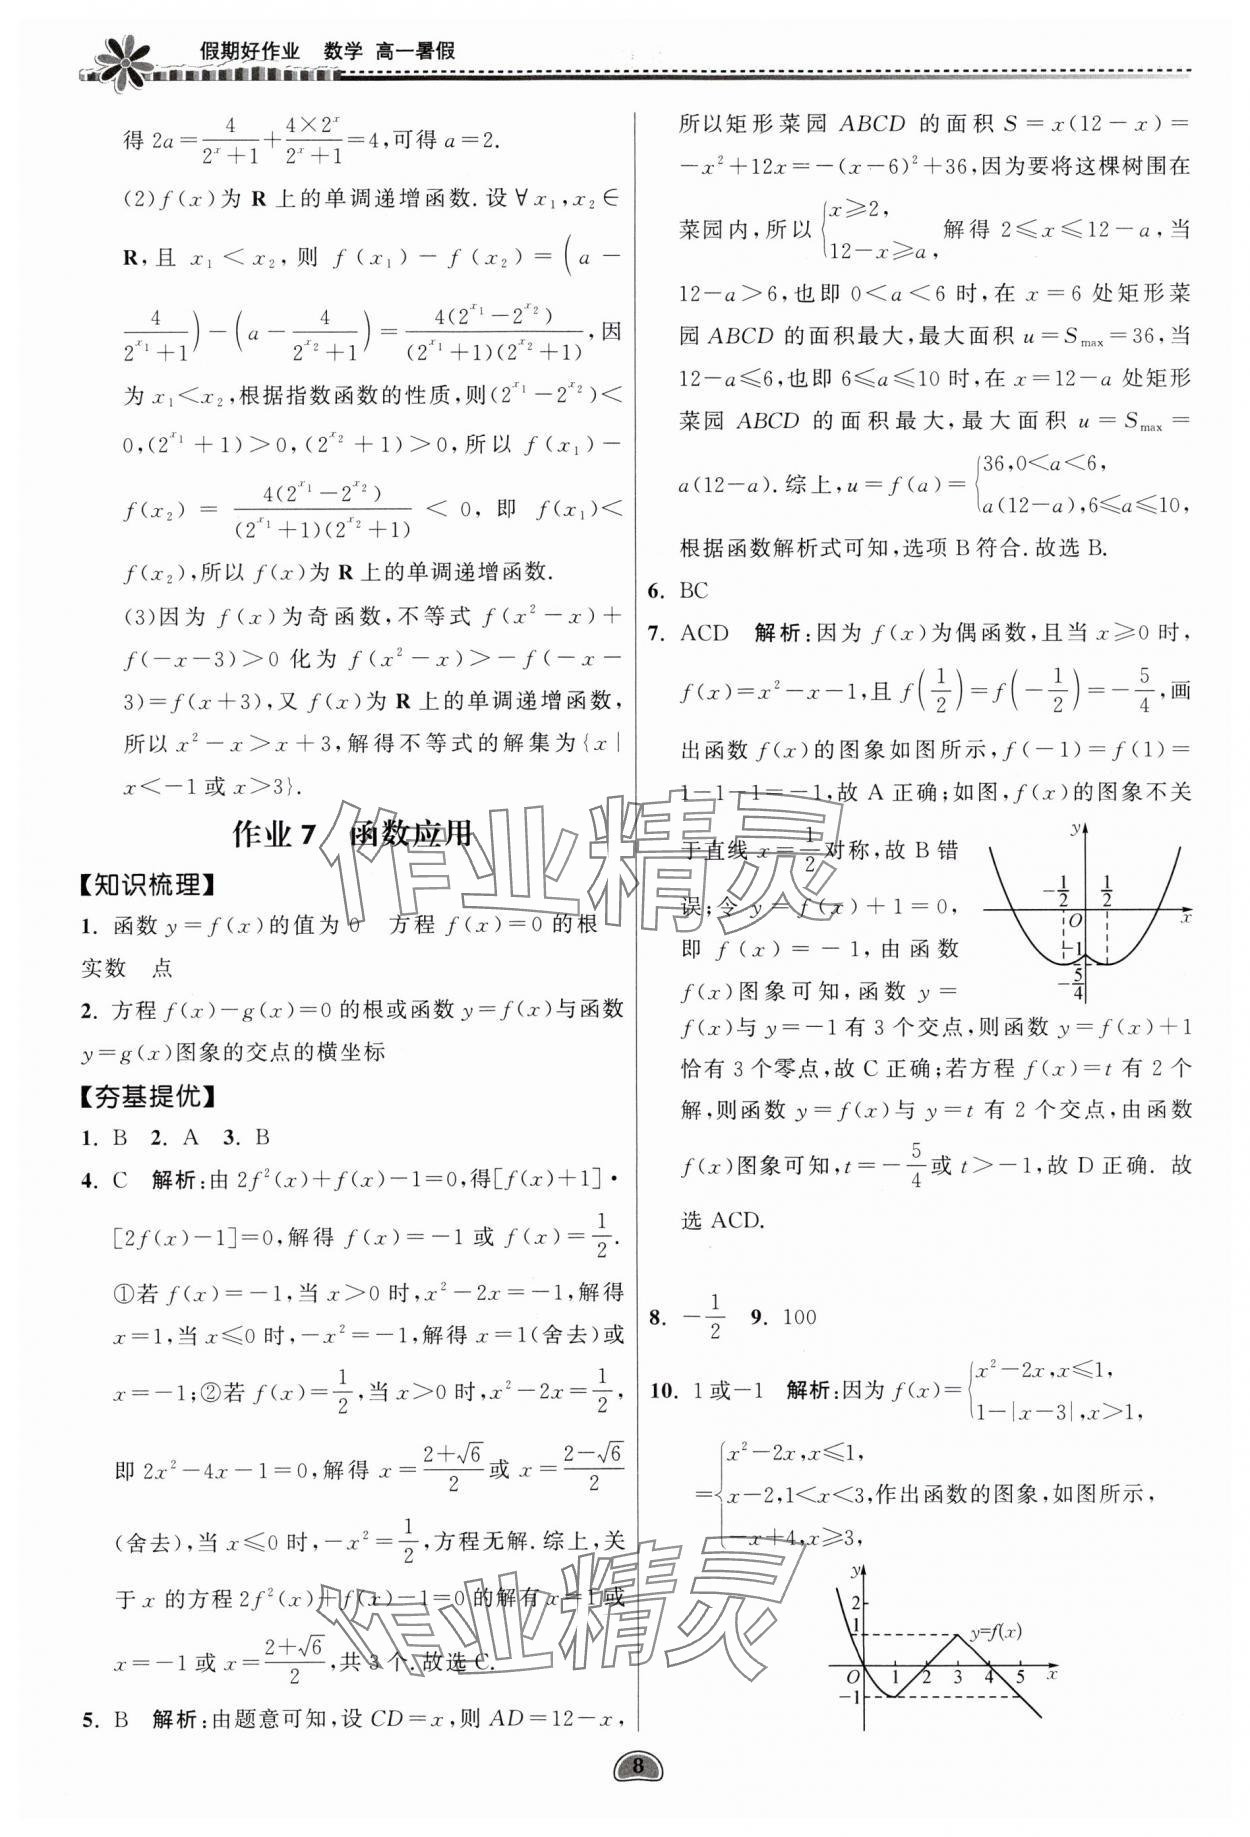 假期好作业 数学 高一暑假
得 2a=4/(2^x+1)+(4×2^x)/(2^x+1)=4,可得 a=2.
(2)f(x)为 R 上的单调递增函数.设∀x₁,x₂∈
R,且 x₁<x₂,则 f(x₁)-f(x₂)=(a-
4/(2^x₁+1))-(a-4/(2^x₂+1))=4(2^x₁-2^x₂)/((2^x₁+1)(2^x₂+1)),因
为 x₁<x₂,根据指数函数的性质,则(2^x₁-2^x₂)<
0,(2^x₁+1)>0,(2^x₂+1)>0,所以 f(x₁)-
f(x₂)=4(2^x₁-2^x₂)/((2^x₁+1)(2^x₂+1))<0,即 f(x₁)<
f(x₂),所以 f(x)为 R 上的单调递增函数.
(3)因为 f(x)为奇函数,不等式 f(x²-x)+
f(-x-3)>0 化为 f(x²-x)>-f(-x-
3)=f(x+3),又 f(x)为 R 上的单调递增函数,
所以 x²-x>x+3,解得不等式的解集为{x|
x<-1 或 x>3}.
作业 7 函数应用
【知识梳理】
1. 函数 y=f(x)的值为 0 方程 f(x)=0 的根
实数 点
2. 方程 f(x)-g(x)=0 的根或函数 y=f(x)与函数
y=g(x)图象的交点的横坐标
【夯基提优】
1. B 2. A 3. B
4. C 解析:由 2f²(x)+f(x)-1=0,得[f(x)+1]·
[2f(x)-1]=0,解得 f(x)=-1 或 f(x)=1/2.
①若 f(x)=-1,当 x>0 时,x²-2x=-1,解得
x=1,当 x≤0 时,-x²=-1,解得 x=1(舍去)或
x=-1;②若 f(x)=1/2,当 x>0 时,x²-2x=1/2,
即 2x²-4x-1=0,解得 x=(2+√6)/2 或 x=(2-√6)/2
(舍去),当 x≤0 时,-x²=1/2,方程无解.综上,关
于 x 的方程 2f²(x)+f(x)-1=0 的解有 x=1 或
x=-1 或 x=(2+√6)/2,共 3 个.故选 C.
5. B 解析:由题意可知,设 CD=x,则 AD=12-x,
所以矩形菜园 ABCD 的面积 S=x(12-x)=
-x²+12x=-(x-6)²+36,因为要将这棵树围在
菜园内,所以{x≥2, 12-x≥a, 解得 2≤x≤12-a,当
12-a>6,也即 0<a<6 时,在 x=6 处矩形菜
园 ABCD 的面积最大,最大面积 u=Smax=36,当
12-a≤6,也即 6≤a≤10 时,在 x=12-a 处矩形
菜园 ABCD 的面积最大,最大面积 u=Smax=
a(12-a).综上,u=f(a)={36,0<a<6, a(12-a),6≤a≤10,
根据函数解析式可知,选项 B 符合.故选 B.
6. BC
7. ACD 解析:因为 f(x)为偶函数,且当 x≥0 时,
f(x)=x²-x-1,且 f(1/2)=f(-1/2)=-5/4,画
出函数 f(x)的图象如图所示,f(-1)=f(1)=
1-1-1=-1,故 A 正确;如图,f(x)的图象不关
于直线 x=1/2 对称,故 B 错
误;令 y=f(x)+1=0,
即 f(x)=-1,由函数
f(x)图象可知,函数 y=
f(x)与 y=-1 有 3 个交点,则函数 y=f(x)+1
恰有 3 个零点,故 C 正确;若方程 f(x)=t 有 2 个
解,则函数 y=f(x)与 y=t 有 2 个交点,由函数
f(x)图象可知,t=-5/4 或 t>-1,故 D 正确. 故
选 ACD.
y
-1/2 1/2
O x
-1
-5/4
8. -1/2 9. 100
10. 1 或-1 解析:因为 f(x)={x²-2x,x≤1, 1-|x-3|,x>1,
={x²-2x,x≤1, x-2,1<x<3, -x+4,x≥3, 作出函数的图象,如图所示,
y
2
1 y=f(x)
O 1 2 3 4 5 x
-1
8
作业精灵
作业精灵